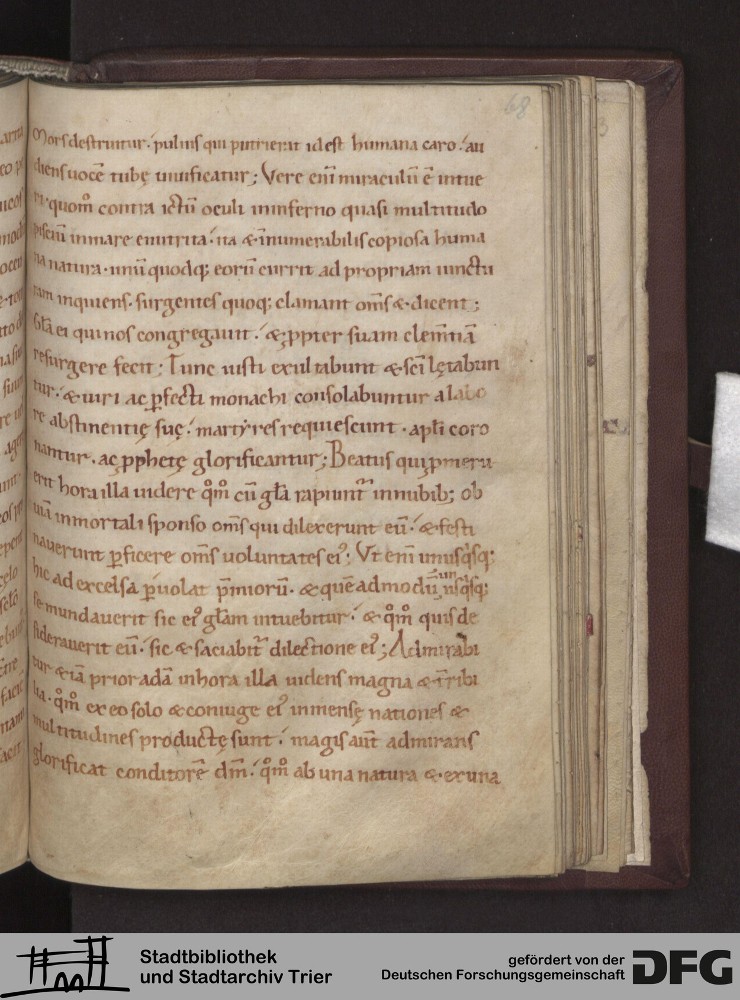 68
Mors destruitur. puluis qui putrierit id est humana caro. au
diens uocē tubę uiuificatur; Vere eni̅ miraculū ē intue
ri. quom̊ contra ictū oculi in inferno quasi multitudo
pisciū in mare enutrita. ita & īnumerabilis copiosa huma
na natura. unū quodq; eorū currit ad propriam iunctu
ram inquiens. surgentes quoq; clamant om̅s & dicent;
Gl̅a ei qui nos congregauit. & ꝓpter suam clem̅tiā
resurgere fecit; Tunc iusti exultabunt & sc̅i lętabun
tur. & uiri ac ꝑfecti monachi consolabuntur a labo
re abstinentię suę. martyres requiescunt. apl̅i coro
nantur. ac ꝓphetę glorificantur; Beatus qui ꝓmeru
erit hora illa uidere qm̊ cū gl̅a rapiunt᷑ in nubib; ob
uiā inmortali sponso om̅s qui dilexerunt eū. & festi
nauerunt ꝑficere om̅s uoluntates eiꝰ; Vt eni̅ unusq̇sq;
hic ad excelsa ꝑuolat p̅miorū. & quē admodū unusq̇sq;
se mundauerit sic eiꝰ gl̅am intuebitur. & qm̊ quis de
siderauerit eū. sic & saciabit᷑ dilectione eiꝰ; Admirabi
tur & iā prior adā in hora illa uidens magna & t̅ribi
lia. qm̊ ex eo solo & coniuge eiꝰ inmensę nationes &
multitudines productę sunt. magis aut̅ admirans
glorificat conditorē dm̅. qm̊ ab una natura & ex una
Stadtbibliothek
und Stadtarchiv Trier
gefördert von der
Deutschen Forschungsgemeinschaft
DFG